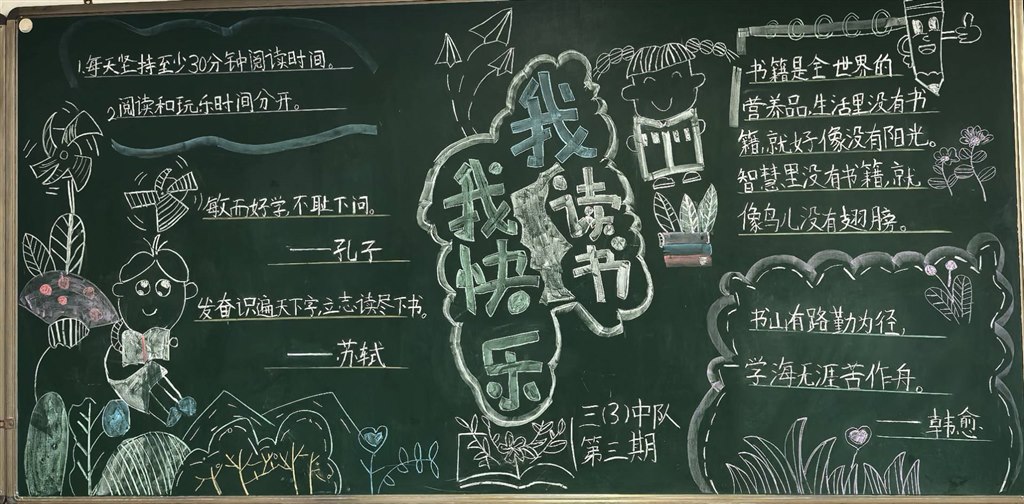 1.每天坚持至少30分钟阅读时间。
2.阅读和玩乐时间分开。
敏而好学,不耻下问。
——孔子
发奋识遍天下字,立志读尽下书。
——苏轼
我读书
我快乐
三(3)中队
第三期
书籍是全世界的
营养品,生活里没有书
籍,就好像没有阳光。
智慧里没有书籍,就
像鸟儿没有翅膀。
书山有路勤为径,
学海无涯苦作舟。
——韩愈